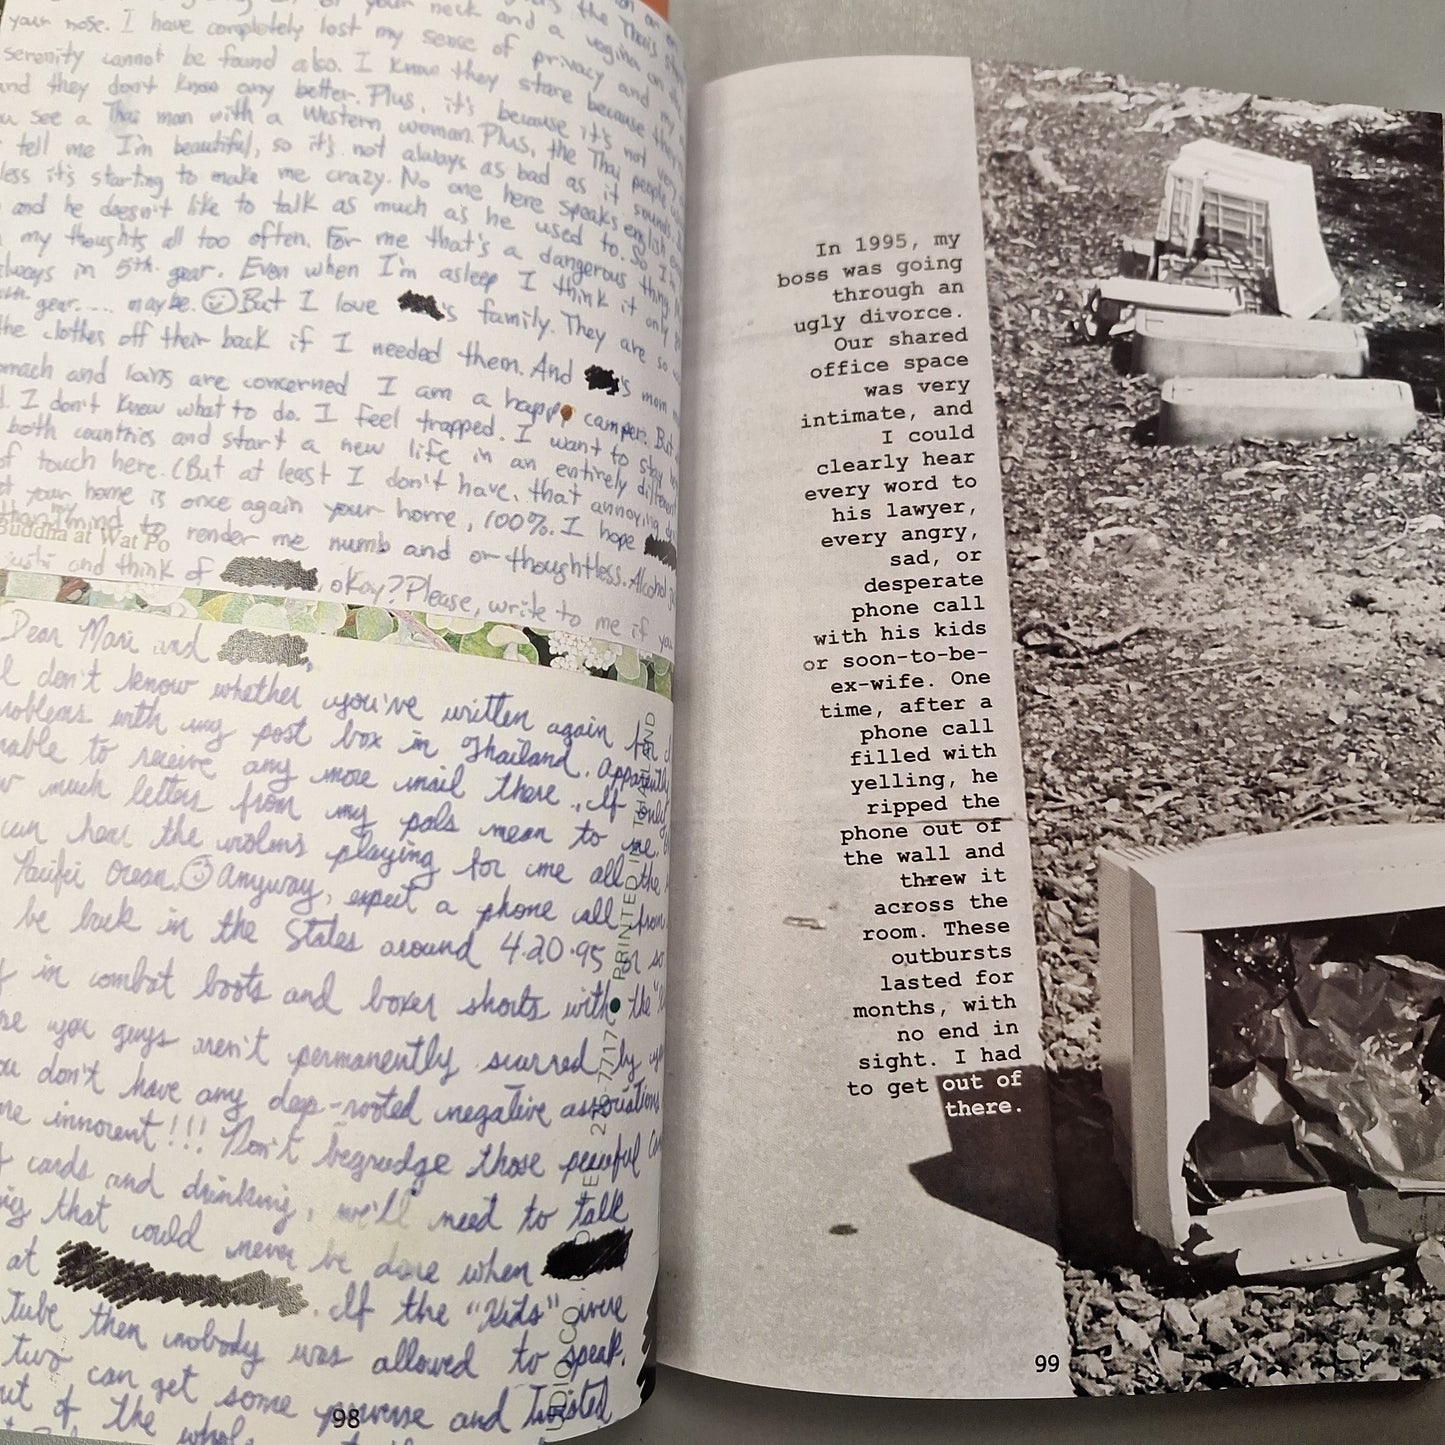 your neck and a vagina on
your nose. I have completely lost my sense of privacy and my
serenity cannot be found also. I know they stare because they
and they don't know any better. Plus, it's because it's not very
see a Thai man with a Western woman. Plus, the Thai people
tell me I'm beautiful, so it's not always as bad as it sounds.
less it's starting to make me crazy. No one here speaks english
and he doesn't like to talk as much as he used to. So I'm
my thoughts all too often. For me that's a dangerous thing
always in 5th gear. Even when I'm asleep I think it only
gear.... maybe. But I love 's family. They are so
the clothes off their back if I needed them. And 's mom
and loins are concerned I am a happy camper. But
I don't know what to do. I feel trapped. I want to stay
both countries and start a new life in an entirely different
of touch here. (But at least I don't have, that annoying
your home is once again your home, 100%. I hope
mind to render me numb and or thoughtless. Alcohol
Buddha at Wat Po
and think of , okay? Please, write to me if you
Dear Mari and ,
I don't know whether you've written again for I
problems with my post box in Thailand. Apparently
to receive any more mail there. If only
much letters from my pals mean to me.
can hear the violins playing for me all the
Pacific Ocean. Anyway, expect a phone call from
be back in the States around 4.20.95 or so
in combat boots and boxer shorts with the
you guys aren't permanently scarred by
don't have any deep-rooted negative associations
innocent!!! Don't begrudge those peaceful
cards and drinking, we'll need to talk
that could never be done when
at . If the "Kids" were
tube then nobody was allowed to speak.
two can get some perverse and twisted
out of the whole
PRINTED IN THAILAND
98
In 1995, my
boss was going
through an
ugly divorce.
Our shared
office space
was very
intimate, and
I could
clearly hear
every word to
his lawyer,
every angry,
sad, or
desperate
phone call
with his kids
or soon-to-be-
ex-wife. One
time, after a
phone call
filled with
yelling, he
ripped the
phone out of
the wall and
threw it
across the
room. These
outbursts
lasted for
months, with
no end in
sight. I had
to get out of
there.
99